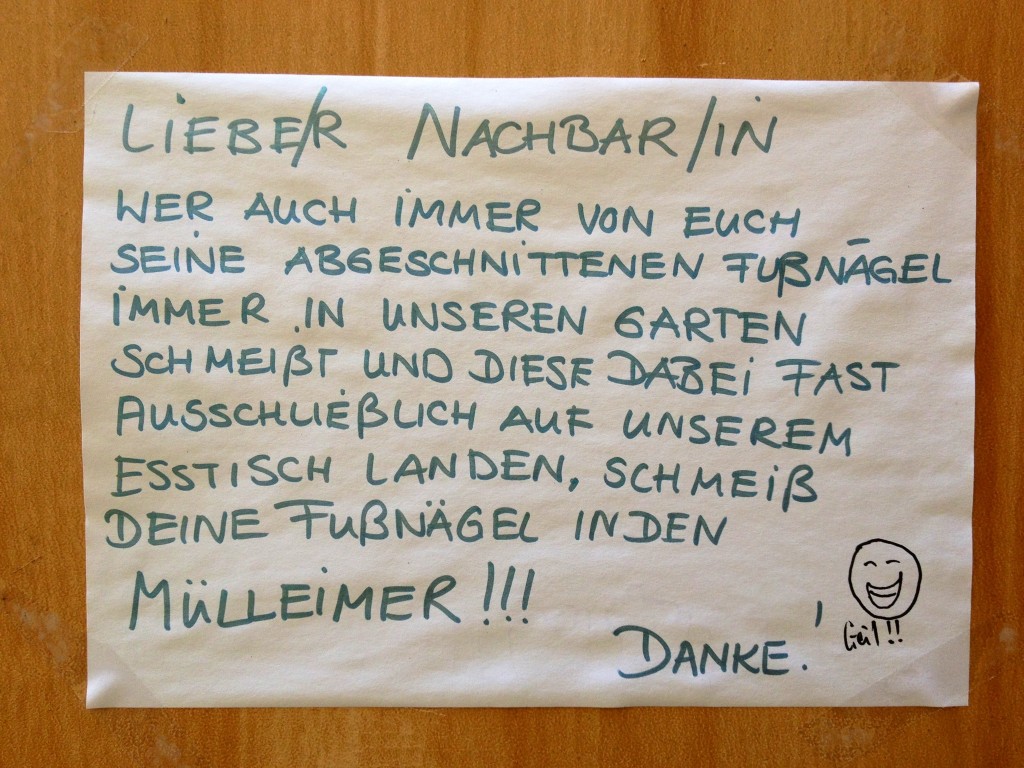 LIEBE/R NACHBAR/IN
WER AUCH IMMER VON EUCH
SEINE ABGESCHNITTENEN FUßNÄGEL
IMMER IN UNSEREN GARTEN
SCHMEIßT UND DIESE DABEI FAST
AUSSCHLIEßLICH AUF UNSEREM
ESSTISCH LANDEN, SCHMEIß
DEINE FUßNÄGEL IN DEN
MÜLLEIMER!!!
DANKE!
Geil!!